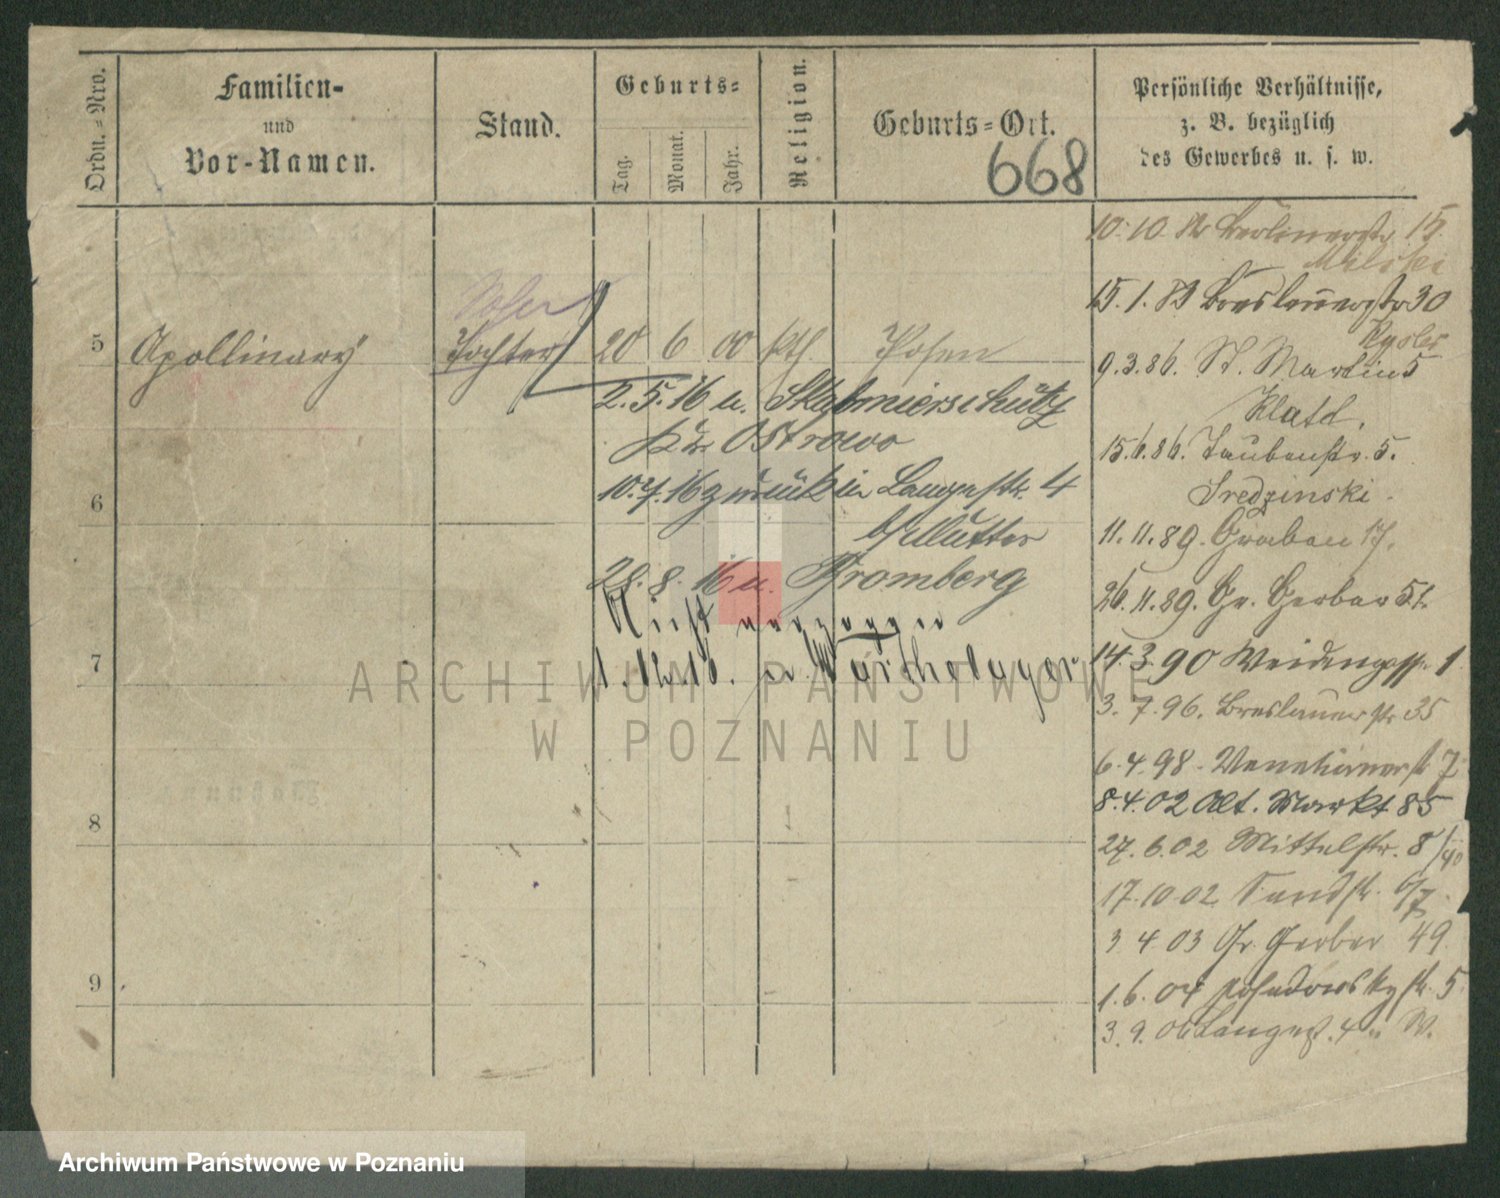 Ordn.=Nro.
Familien-
und
Vor-Namen.
Stand.
Geburts=
Tag.
Monat.
Jahr.
Religion.
Geburts=Ort.
668
Persönliche Verhältnisse,
z. B. bezüglich
des Gewerbes u. s. w.
5
Apollinary
Sohn
Tochter
20 6 00 kth. Posen
2.5.16 u. Skalmierschütz
Kr. Ostrowo
10.7.16 zurück in Langestr. 4
b/ Mutter
28.8.16 u. Bromberg
Nicht verzogen
1.12.16. u. Warthelager
6
7
8
9
10.10. Berlinerstr. 15
Milski
15.1. Breslauerstr 30
9.3.86. St. Martin 5
15.6.86. Taubenstr. 5.
Sredzinski
11.11.89. Graben 17.
26.11.89. Gr. Gerber 51.
14.3.90 Weidengasse 1
3.7.96. Breslauerstr 35
6.4.98. Venetianerstr 7
8.4.02 Alt. Markt 85
27.6.02 Mittelstr. 8
17.10.02 Sandstr. 6/7
3 4 03 Gr. Gerber 49
1.6.04 Posadowskystr. 5
3.9.06 Langestr. 4
ARCHIWUM PAŃSTWOWE
W POZNANIU
Archiwum Państwowe w Poznaniu